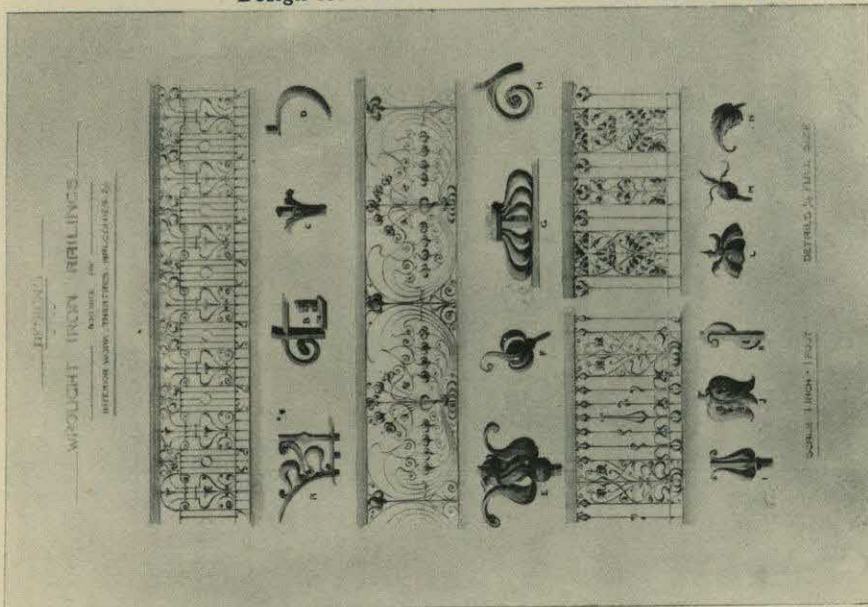 Design
DESIGNS
WROUGHT IRON RAILINGS
SUITABLE FOR
INTERIOR WORK, THEATRES, BALCONIES &
A
B
C
D
E
F
G
H
I
J
K
L
M
N
SCALE 1 INCH = 1 FOOT
DETAILS ¼ FULL SIZE